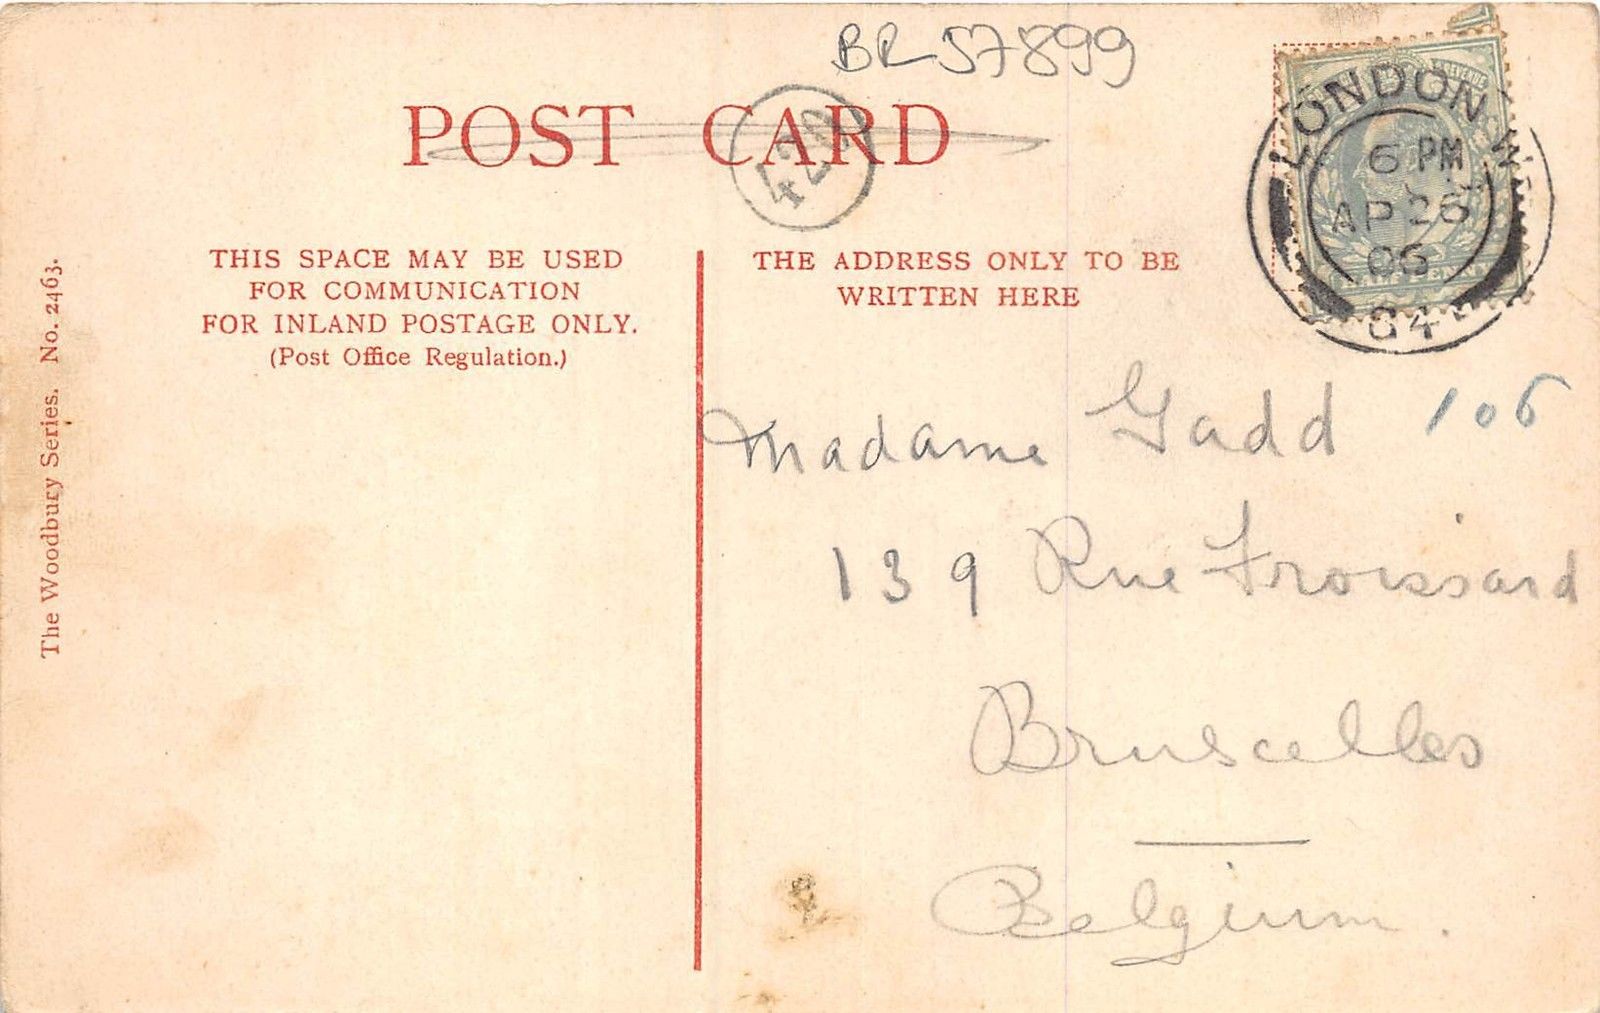 BR57899
POST CARD
420
LONDON W.
6 PM
AP 26
06
64
REVENUE
THIS SPACE MAY BE USED
FOR COMMUNICATION
FOR INLAND POSTAGE ONLY.
(Post Office Regulation.)
THE ADDRESS ONLY TO BE
WRITTEN HERE
The Woodbury Series. No. 2463.
Madame Gadd 106
139 Rue Froissard
Bruxelles
Belgium.